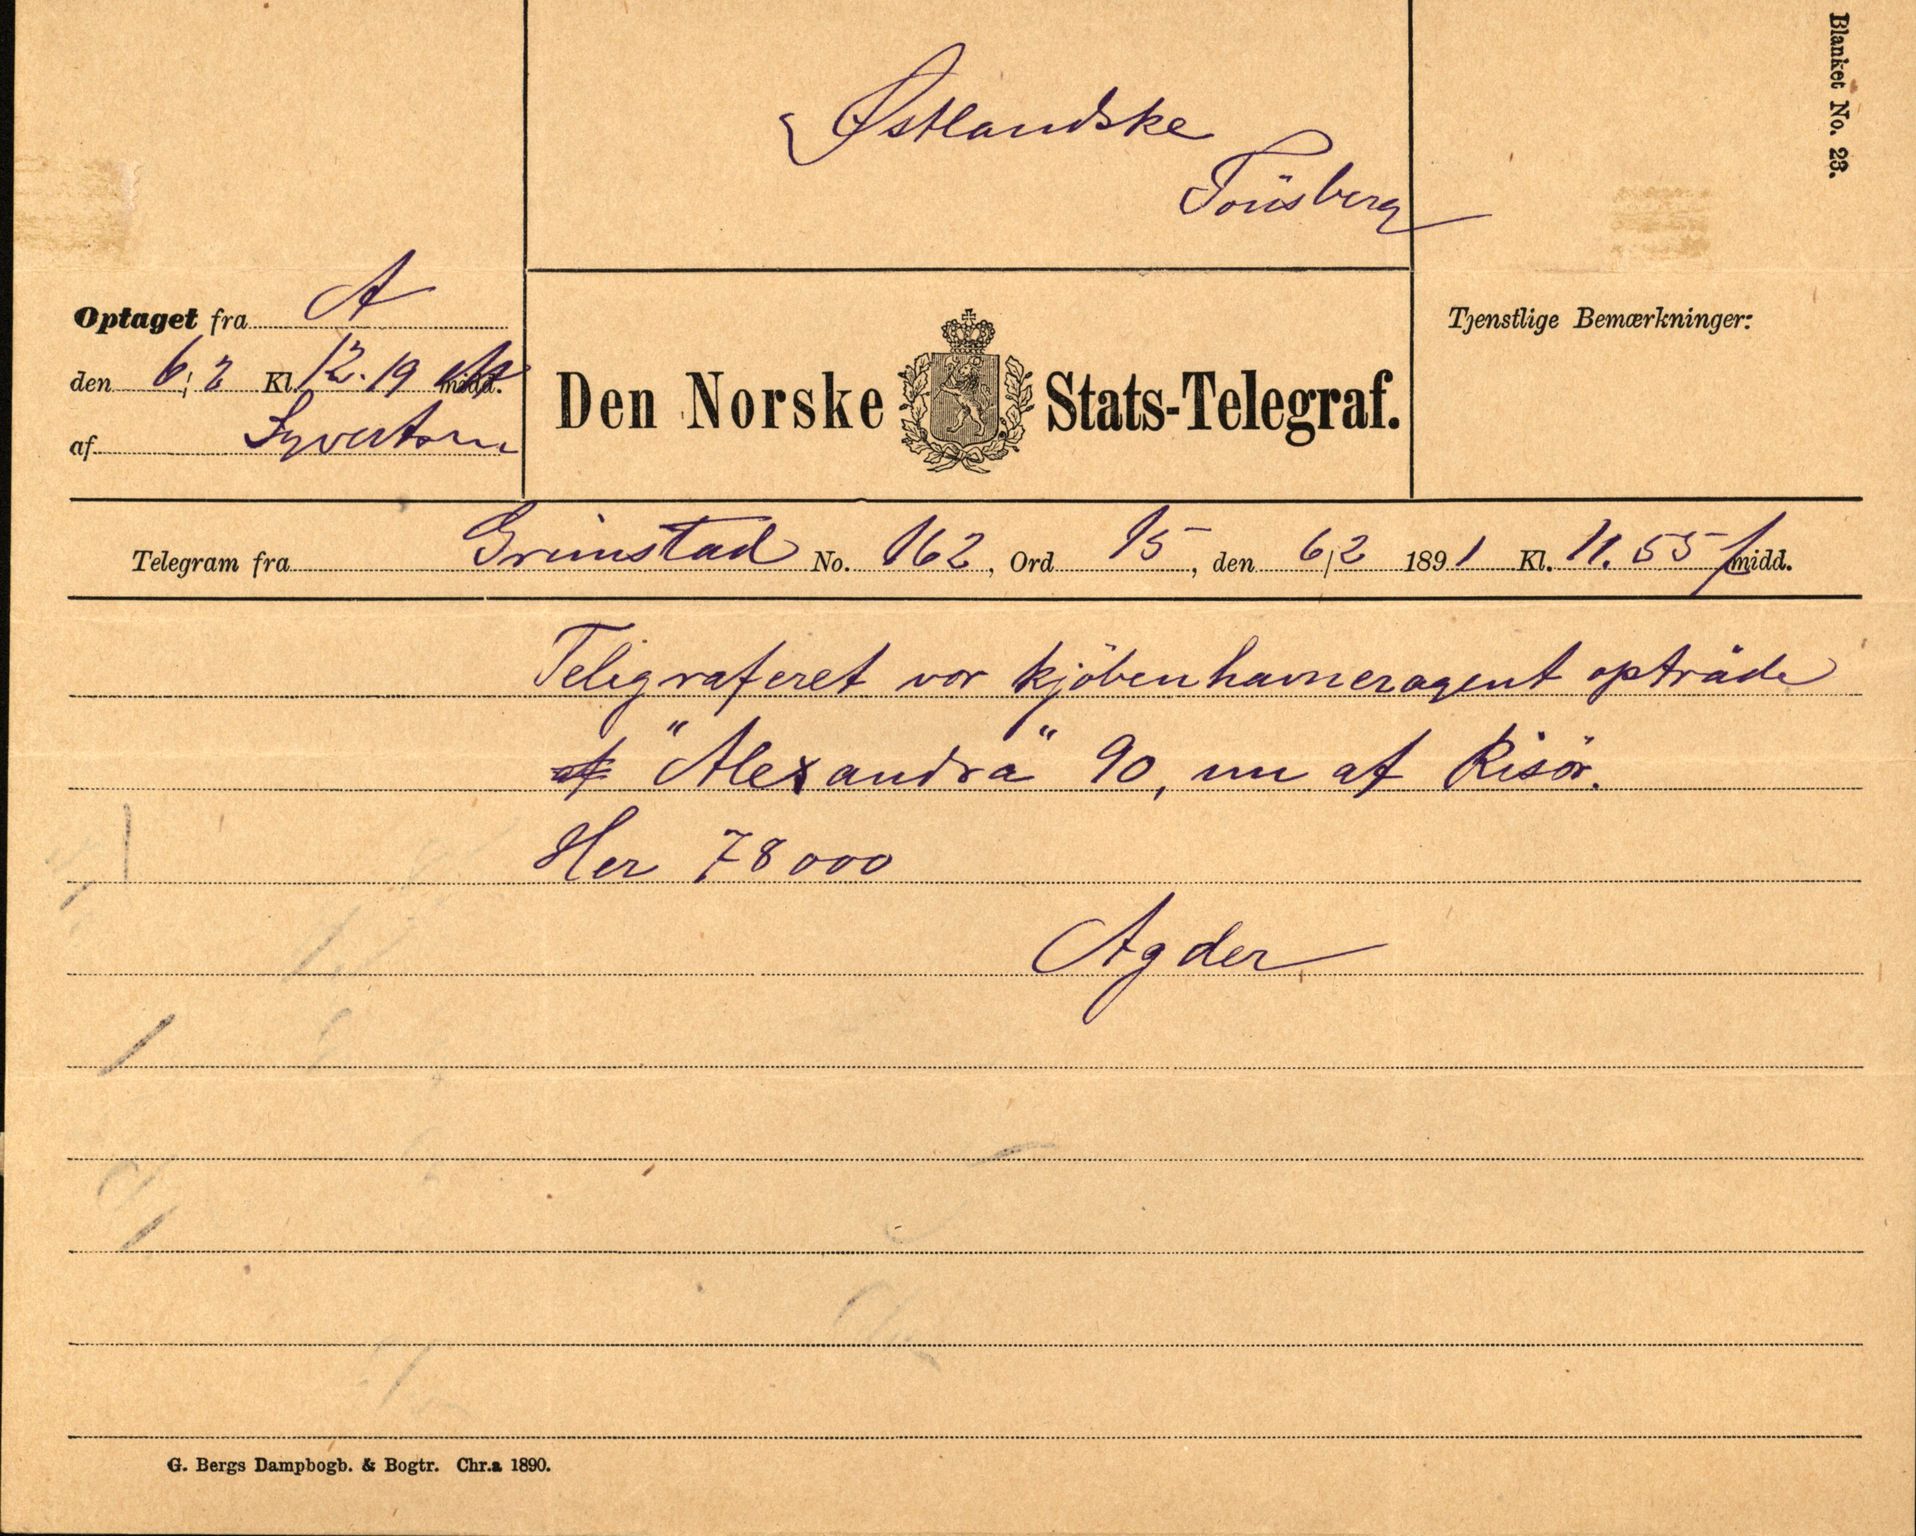 Blanket No. 23.
Østlandske
Tönsberg
Optaget fra A
den 6/2 Kl. 12.19 midd.
af Syvertsen
Den Norske Stats-Telegraf.
Tjenstlige Bemærkninger:
Telegram fra Grimstad No. 162, Ord 15, den 6/2 1891 Kl. 11.55 f midd.
Teligraferet vor kjöbenhavneragent opträde
af "Alexandra" 90, nu af Risör.
Her 78000
Agder
G. Bergs Dampbogb. & Bogtr. Chr.a 1890.